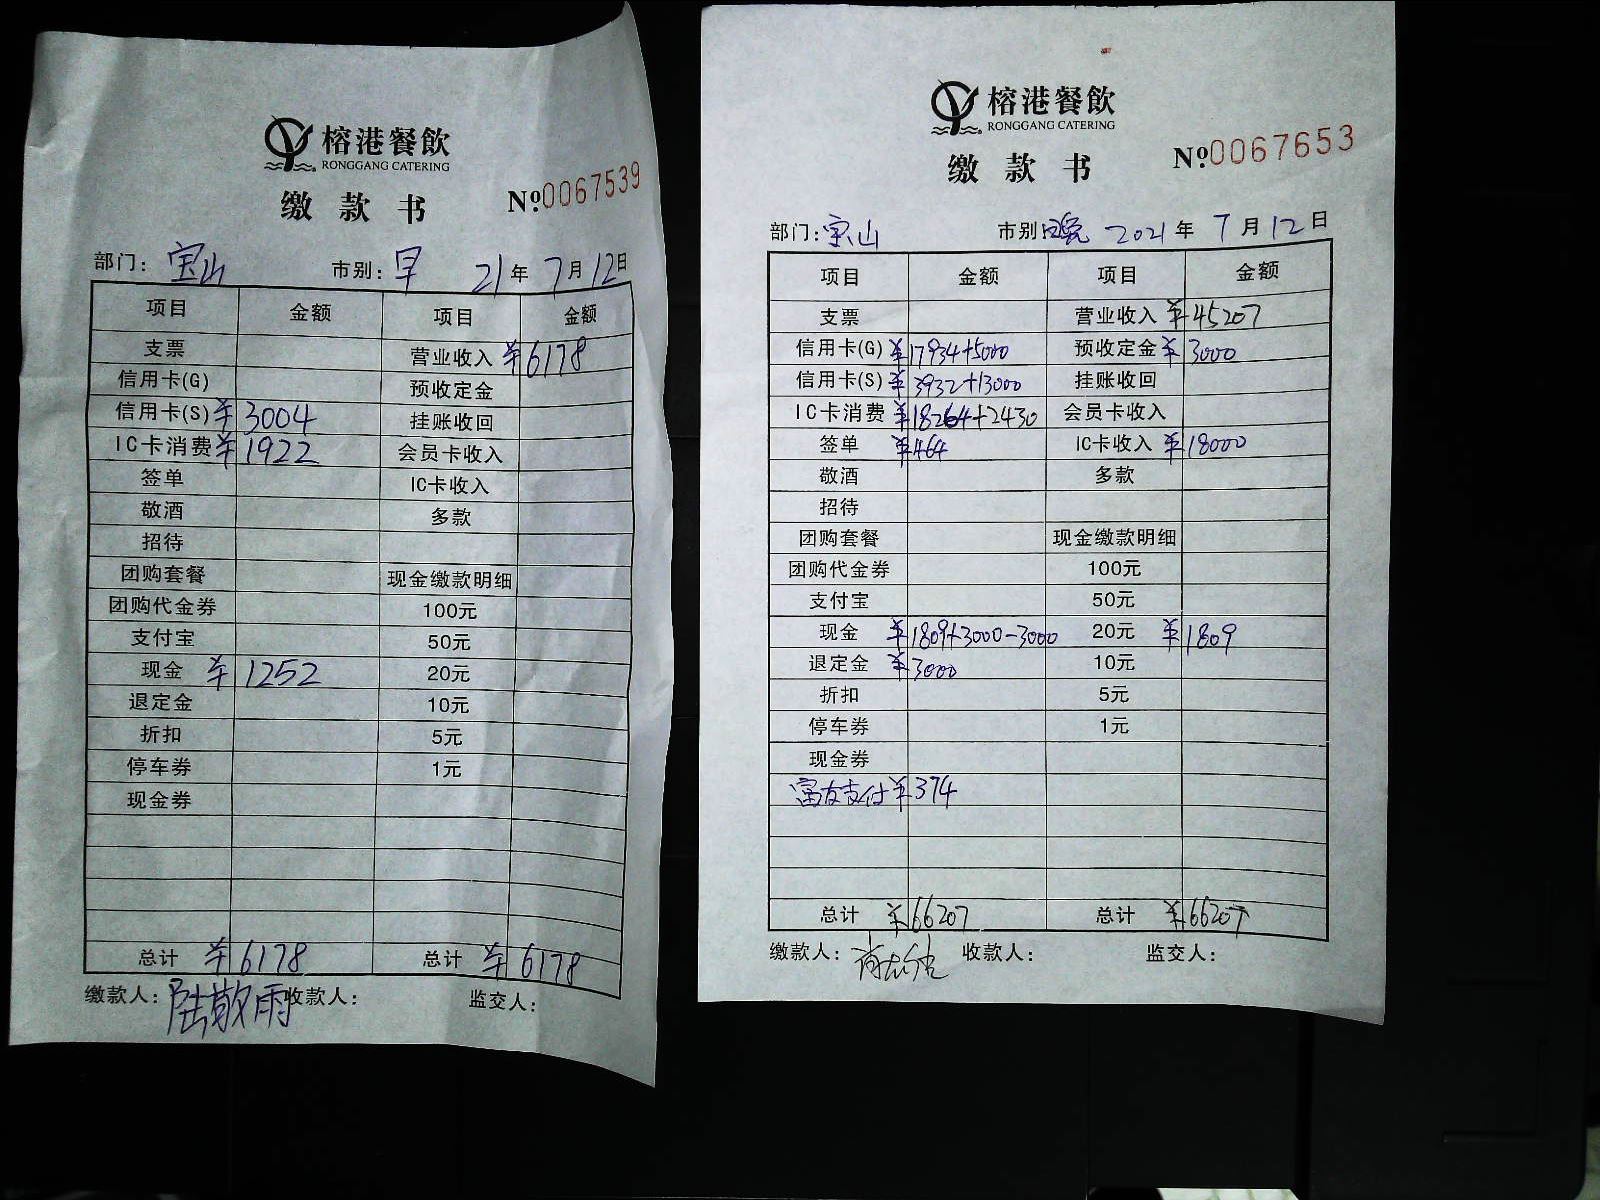 榕港餐飲
RONGGANG CATERING
缴款书 Nº0067539
部门：宝山 市别：早 21年7月12日
项目 金额 项目 金额
支票 营业收入 ¥6178
信用卡(G) 预收定金
信用卡(S) ¥3004 挂账收回
IC卡消费 ¥1922 会员卡收入
签单 IC卡收入
敬酒 多款
招待
团购套餐 现金缴款明细
团购代金券 100元
支付宝 50元
现金 ¥1252 20元
退定金 10元
折扣 5元
停车券 1元
现金券
总计 ¥6178 总计 ¥6178
缴款人：陆敬雨 收款人： 监交人：
榕港餐飲
RONGGANG CATERING
缴款书 Nº0067653
部门：宝山 市别：晚 2021年7月12日
项目 金额 项目 金额
支票 营业收入 ¥45207
信用卡(G) ¥17934+5000 预收定金 ¥3000
信用卡(S) ¥3932+13000 挂账收回
IC卡消费 ¥18264+2430 会员卡收入
签单 ¥464 IC卡收入 ¥18000
敬酒 多款
招待
团购套餐 现金缴款明细
团购代金券 100元
支付宝 50元
现金 ¥1809+3000-3000 20元 ¥1809
退定金 ¥3000 10元
折扣 5元
停车券 1元
现金券
富友支付 ¥374
总计 ¥66207 总计 ¥66207
缴款人： 收款人： 监交人：